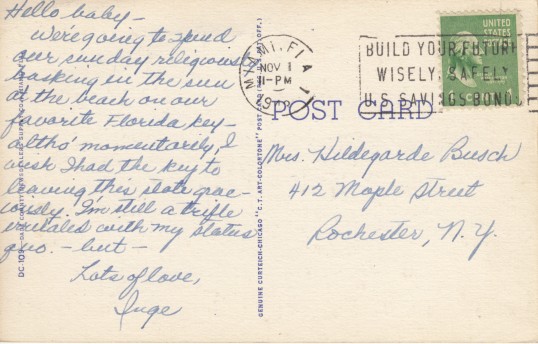 Hello baby-
We're going to spend
our sunday religiously
basking in the sun
at the beach on our
favorite Florida key-
altho' momentarily, I
wish I had the key to
leaving this state grac-
iously. I'm still a trifle
irritated with my status
quo. - but -
Lots of love,
Inge
DC-109-DADE COUNTY NEWSDEALERS SUPPLY
GENUINE CURTEICH-CHICAGO "C.T. ART-COLORTONE" POST CARD (REG. U.S. PAT. OFF.)
MIAMI, FLA
NOV 1
11-PM
BUILD YOUR FUTURE
WISELY, SAFELY
U.S. SAVINGS BONDS
UNITED
STATES
POST CARD
Mrs. Hildegarde Busch
412 Maple Street
Rochester, N.Y.